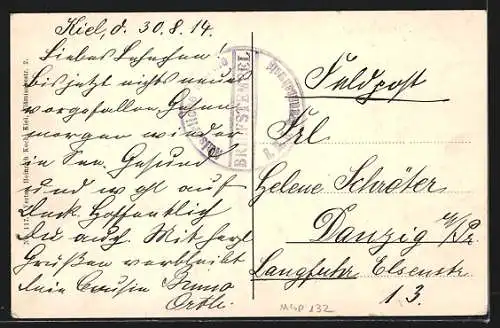 Kiel, d. 30.8.14.
Liebes Lenchen!
Bis jetzt nichts neues
vorgefallen. Gehen
morgen wieder
in See. Gesund
und wohl auf
Deck. Hoffentlich
du auch. Mit herzl
Grüßen verbleibt
dein Cousin Bruno
BRIEFSTEMPEL
Feldpost
Frl
Helene Schröter
Danzig w/Pr.
Langfuhr Elsenstr
13.
Verlag Heinrich Koch, Kiel,
MSP 132